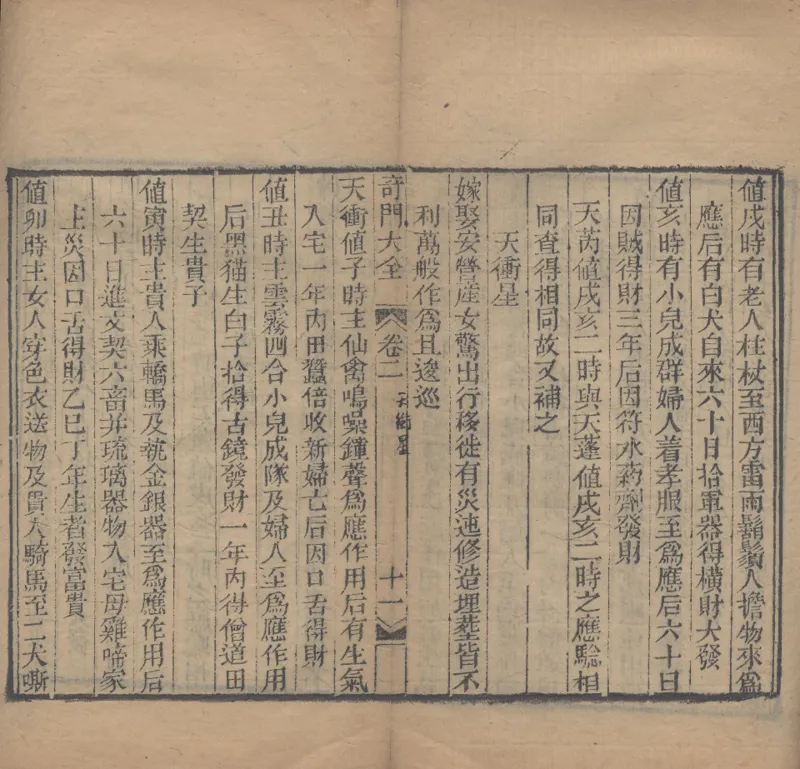 値戌時有老人柱杖至西方雷雨鬍鬚人擔物來爲
應后有白犬自來六十日拾軍器得橫財大發
値亥時有小兒成群婦人着孝服至爲應后六十日
因賊得財三年后因符水葯劑發財
天芮値戌亥二時與天蓬値戌亥二時之應驗相
同査得相同故又補之
天衝星
嫁娶安營產女驚出行移徙有災迍修造埋塟皆不
利萬般作爲且逡巡
奇門大全 卷二 天衝星 十一
天衝値子時主仙禽鳴噪鍾聲爲應作用后有生氣
入宅一年內田蠶倍收新婦亡后因口舌得財
値丑時主雲霧四合小兒成隊及婦人至爲應作用
后黑猫生白子拾得古鏡發財一年內得僧道田
契生貴子
値寅時主貴人乘轎馬及執金銀器至爲應作用后
六十日進文契六畜并琉璃器物入宅母雞啼家
上災因口舌得財乙巳丁年生者發富貴
値卯時主女人穿色衣送物及貴人騎馬至二犬嘶